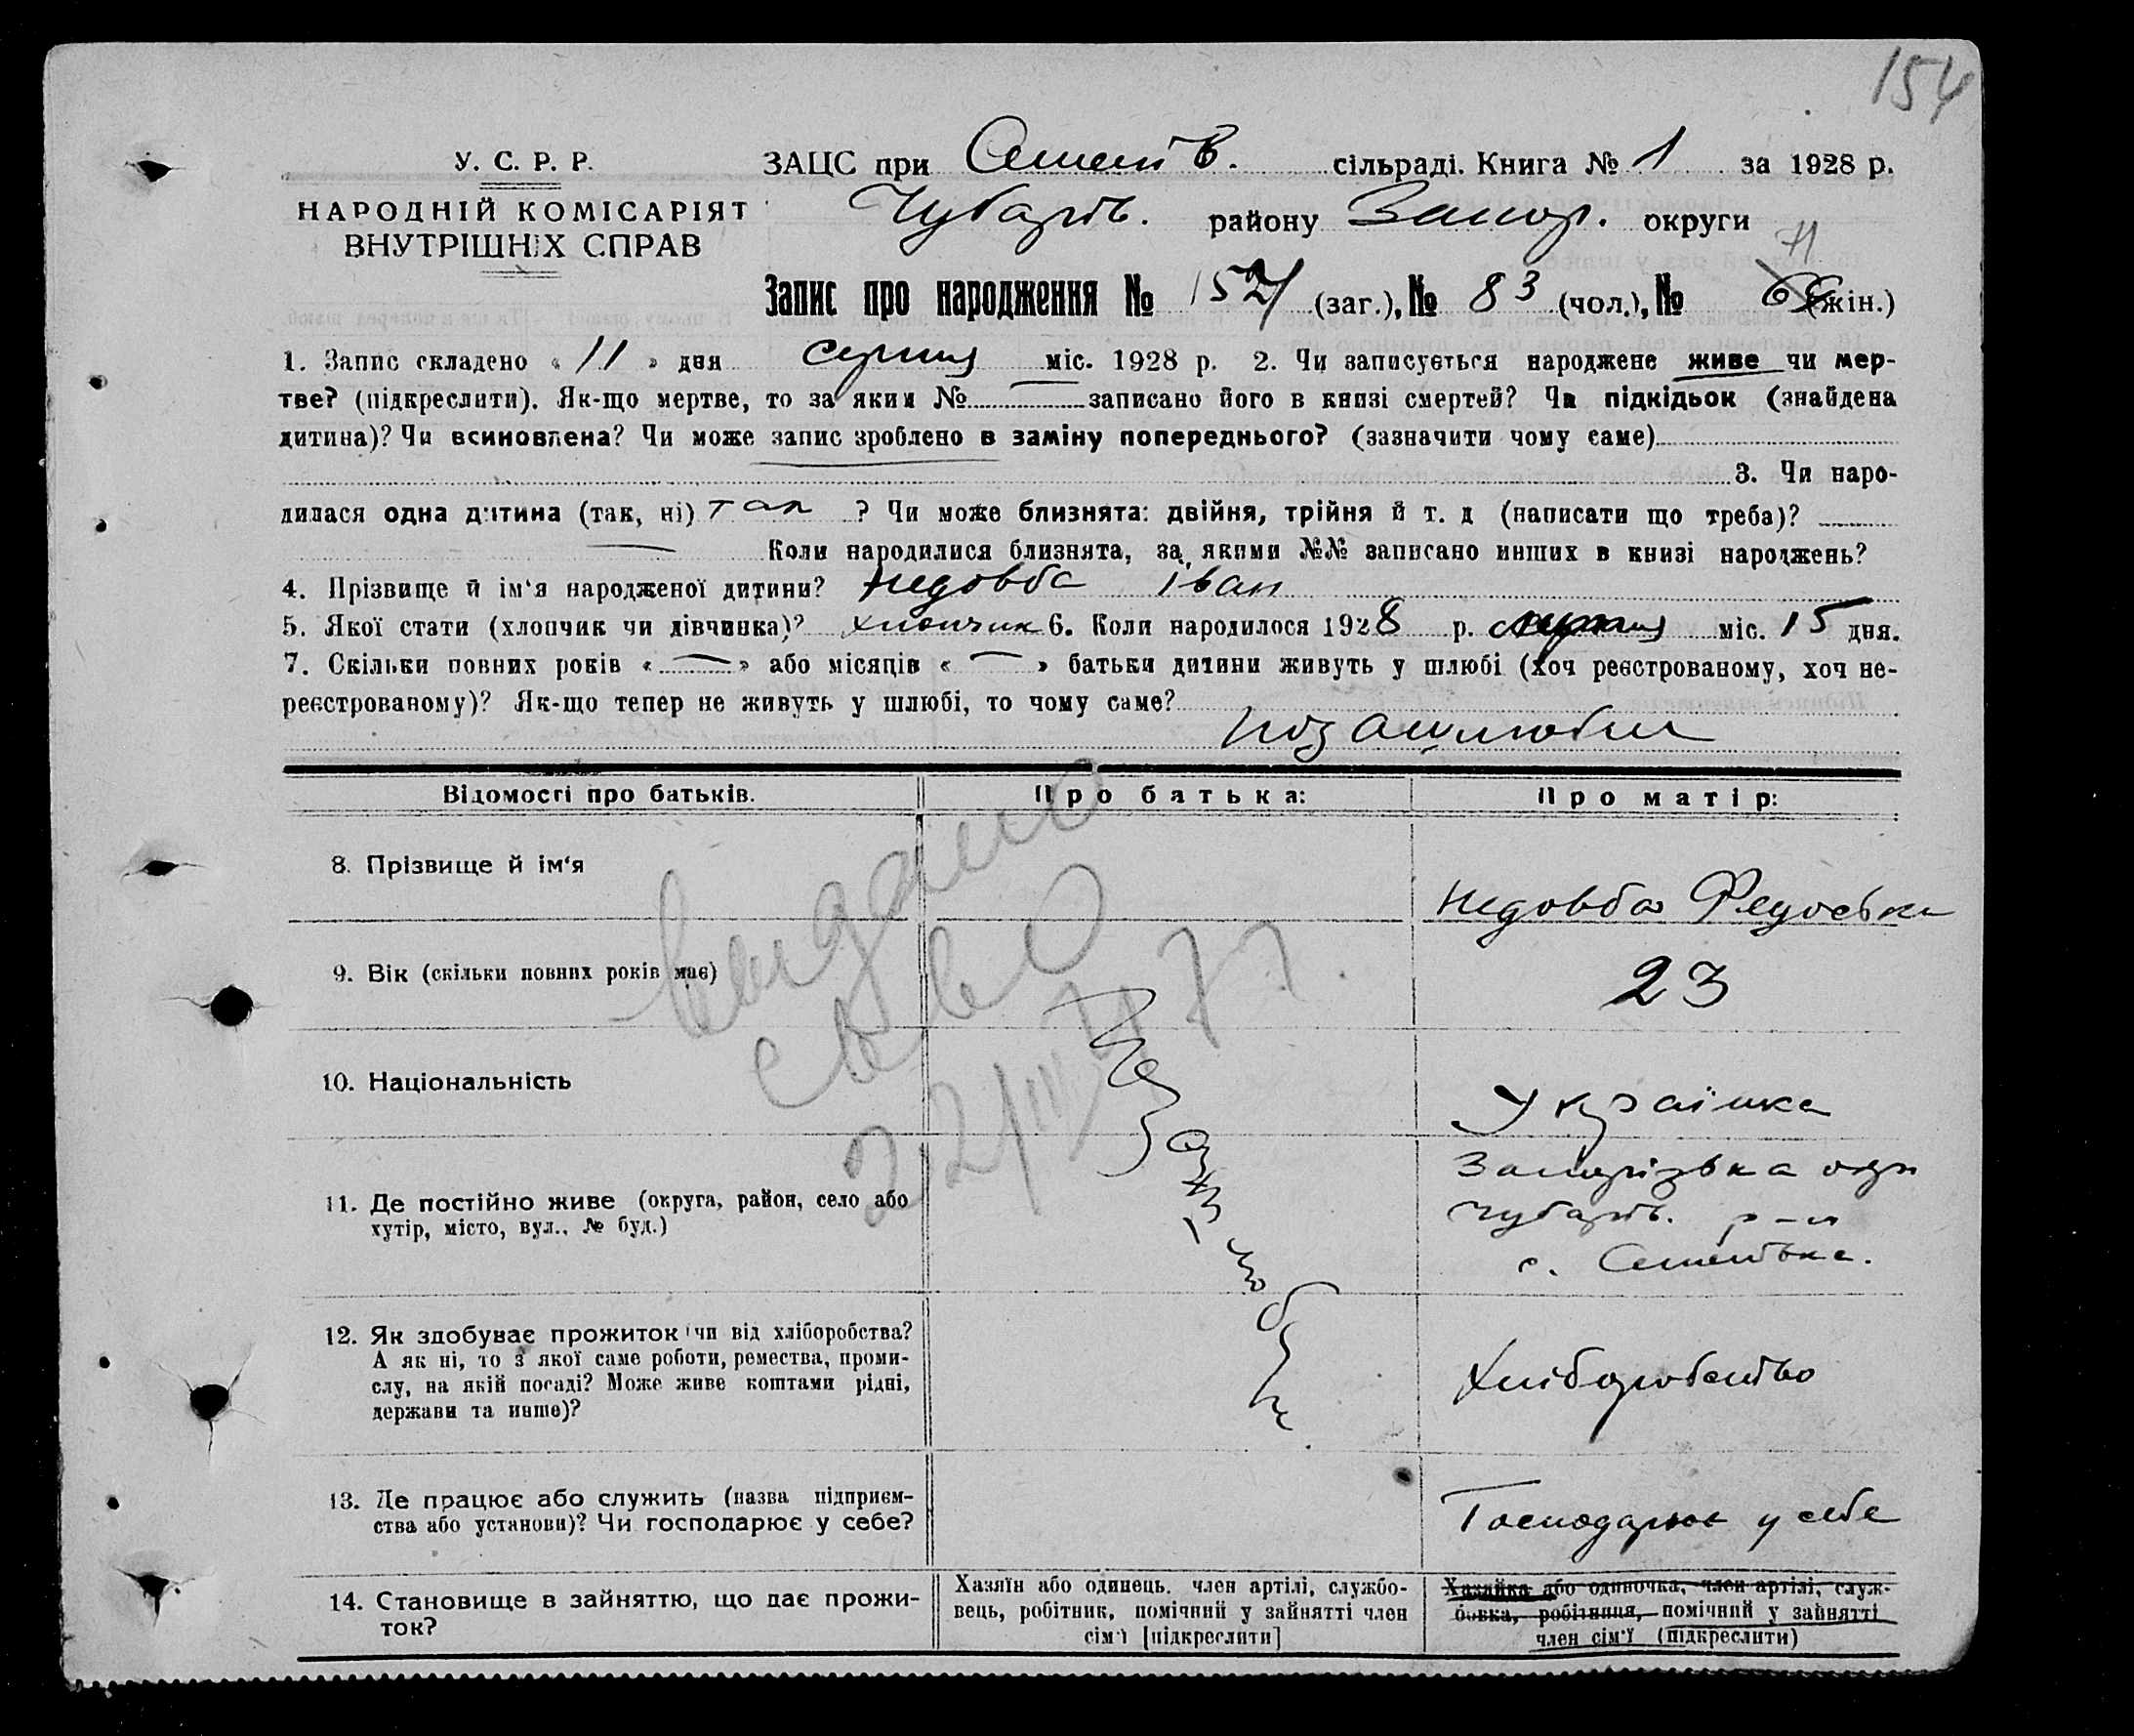 154
У. С. Р. Р.
НАРОДНІЙ КОМІСАРІЯТ
ВНУТРІШНІХ СПРАВ
ЗАЦС при Семенів. сільраді. Книга № 1 за 1928 р.
Чубарів. району Запор. округи
71
Запис про народження № 154 (заг.), № 83 (чол.), № (жін.)
1. Запис складено « 11 » дня серпня міс. 1928 р. 2. Чи записується народжене живе чи мер-
тве? (підкреслити). Як-що мертве, то за яким № — записано його в книзі смертей? Чи підкідьок (знайдена
дитина)? Чи всиновлена? Чи може запис зроблено в заміну попереднього? (зазначити чому саме)
3. Чи наро-
дилася одна дитина (так, ні) так ? Чи може близнята: двійня, трійня й т. д (написати що треба)?
— Коли народилися близнята, за якими №№ записано инших в книзі народжень?
4. Прізвище й ім'я народженої дитини? Недовба Іван
5. Якої стати (хлопчик чи дівчинка)? хлопчик 6. Коли народилося 1928 р. міс. 15 дня.
7. Скільки повних років « — » або місяців « — » батьки дитини живуть у шлюбі (хоч реєстрованому, хоч не-
реєстрованому)? Як-що тепер не живуть у шлюбі, то чому саме?
позашлюбне
Відомості про батьків.
Про батька:
Про матір:
8. Прізвище й ім'я
Недовба Федоська
9. Вік (скільки повних років має)
23
10. Національність
Українка
11. Де постійно живе (округа, район, село або
хутір, місто, вул., № буд.)
Запорізька окр
Чубарів. р-н
с. Семенівка.
12. Як здобуває прожиток чи від хліборобства?
А як ні, то з якої саме роботи, ремества, проми-
слу, на якій посаді? Може живе коштами рідні,
держави та инше)?
Хліборобство
13. Де працює або служить (назва підприєм-
ства або установи)? Чи господарює у себе?
Господарює у себе
14. Становище в зайняттю, що дає прожи-
ток?
Хазяїн або одинець, член артілі, службо-
вець, робітник, помічний у зайнятті член
сім'ї [підкреслити]
Хазяйка або одиночка, член артілі, служ-
бовка, робітниця, помічний у зайнятті
член сім'ї (підкреслити)
Позашлюбне
видано
св во
22/III 77.